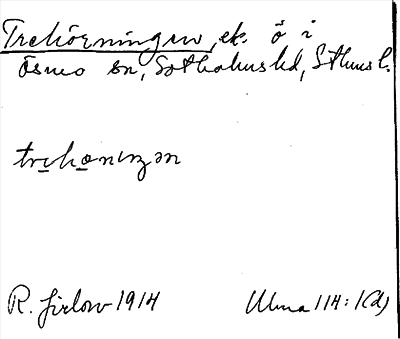 Trehörningen, ek. ö i
Ösmo sn, Sotholms hd, Sthms l.
trehönıŋən
R. Jirlow 1914 Ulma 114:1(d)